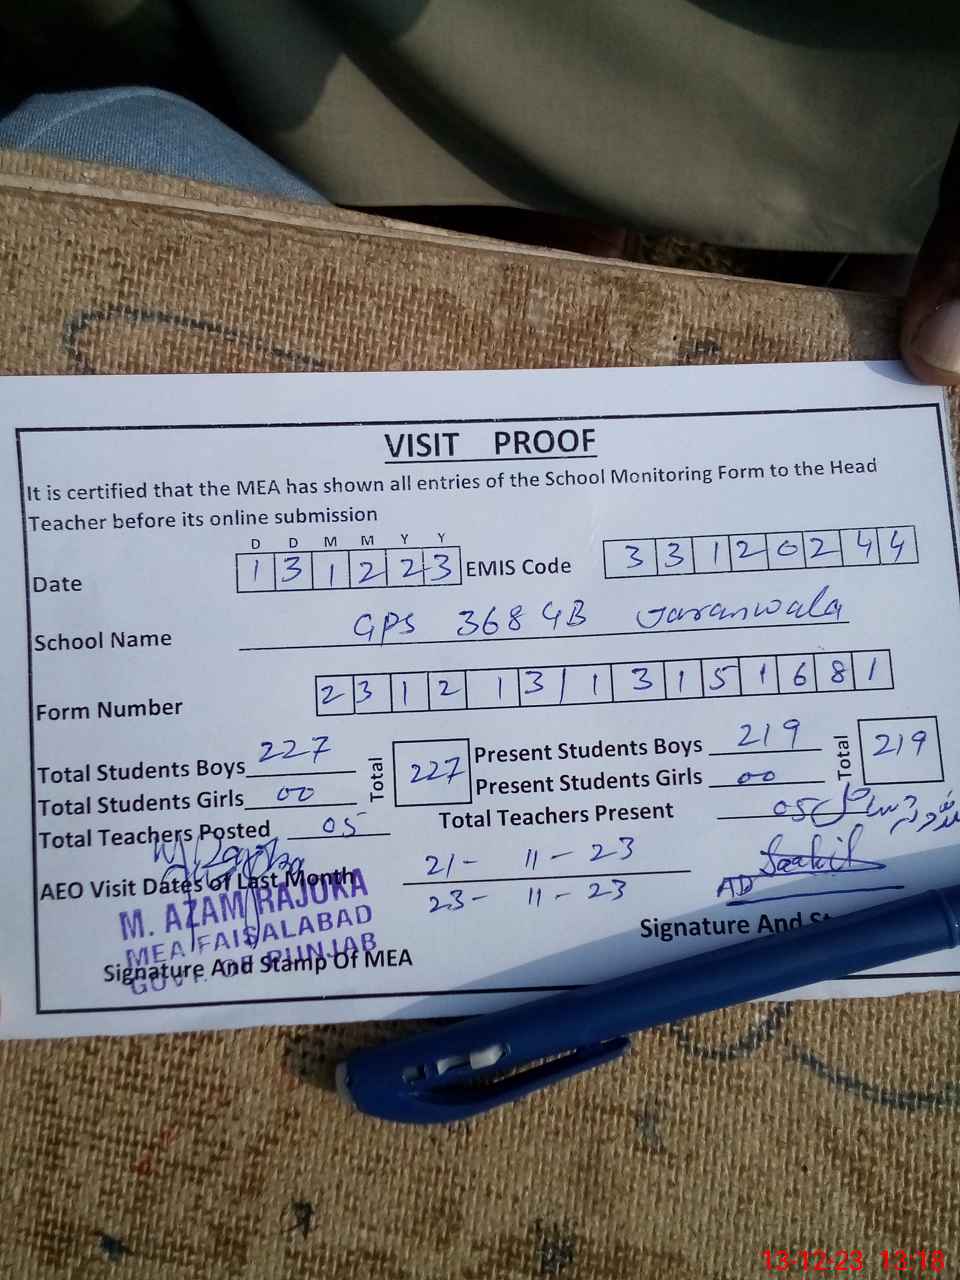 VISIT PROOF
It is certified that the MEA has shown all entries of the School Monitoring Form to the Head
Teacher before its online submission
D D M M Y Y
Date 1 3 1 2 2 3 EMIS Code 3 3 1 2 0 2 4 4
School Name GPS 368 GB Jaranwala
Form Number 2 3 1 2 1 3 1 1 3 1 5 1 6 8 1
Total Students Boys 227 Total 227 Present Students Boys 219 Total 219
Total Students Girls 00 Present Students Girls 00
Total Teachers Posted 05 Total Teachers Present 05
AEO Visit Dates of Last Month 21- 11-23
23- 11-23
AD
M. AZAM RAJUKA
MEA FAISALABAD
GOVT. OF PUNJAB
Signature And Stamp Of MEA
Signature And
13-12-23 13:18